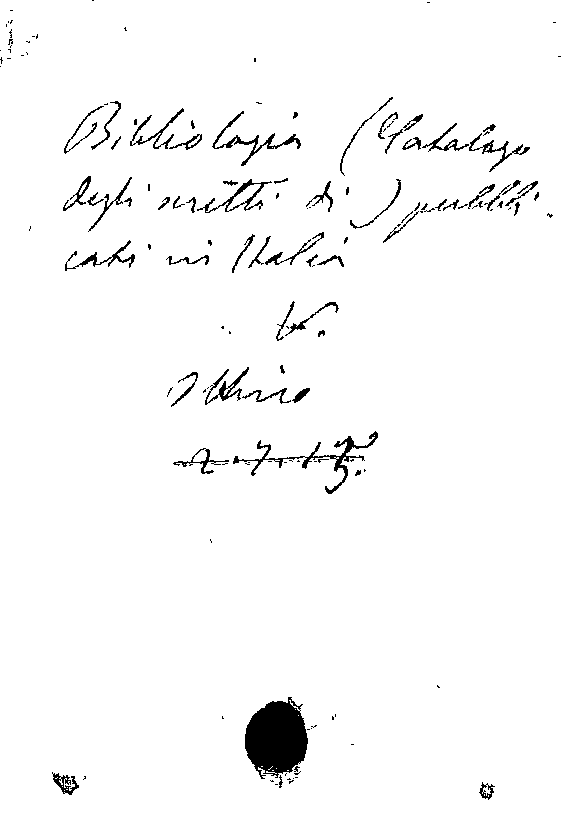 Bibliologia (Catalogo
degli scritti di) pubbli-
cati in Italia
V.